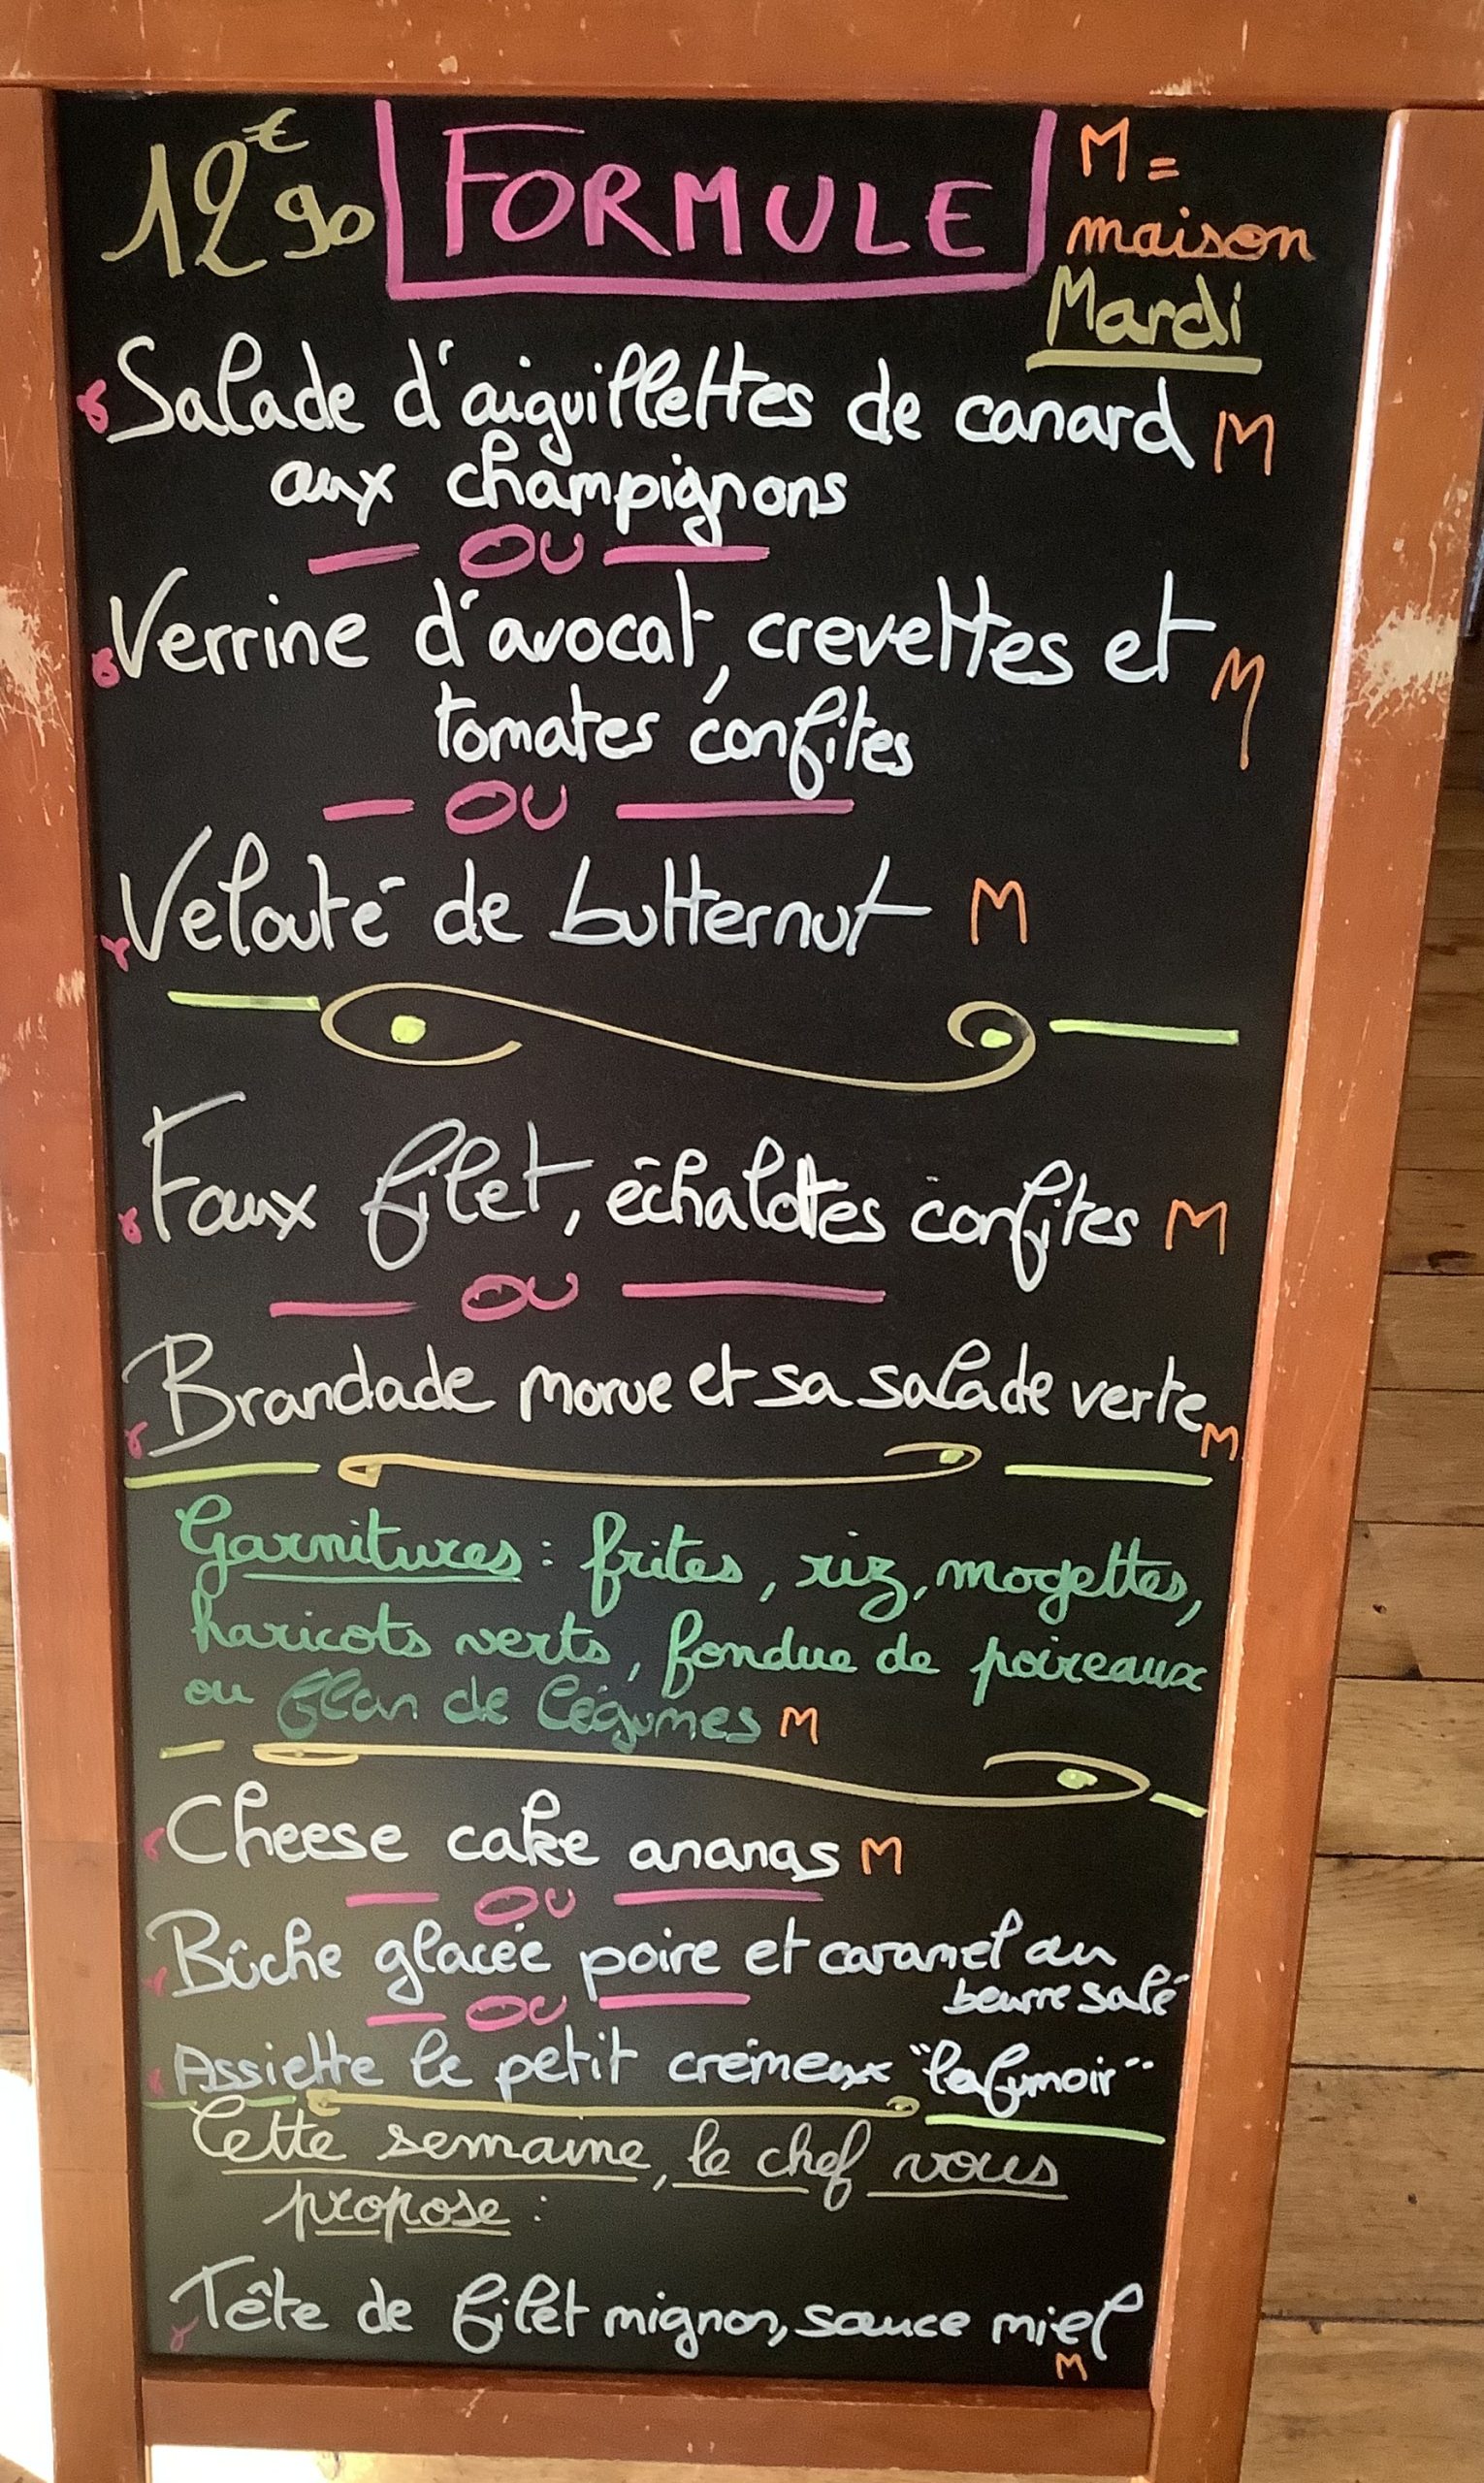 12€90 FORMULE M =
maison
Mardi
Salade d'aiguillettes de canard M
aux champignons
OU
Verrine d'avocat, crevettes et M
tomates confites
OU
Velouté de butternut M
Faux filet, échalottes confites M
OU
Brandade morue et sa salade verte M
Garnitures : frites, riz, mogettes,
haricots verts, fondue de poireaux
ou flan de légumes M
Cheese cake ananas M
OU
Bûche glacée poire et caramel au
beurre salé
OU
Assiette le petit crémeux "lafumoir"
Cette semaine, le chef vous
propose :
Tête de filet mignon, sauce miel
M